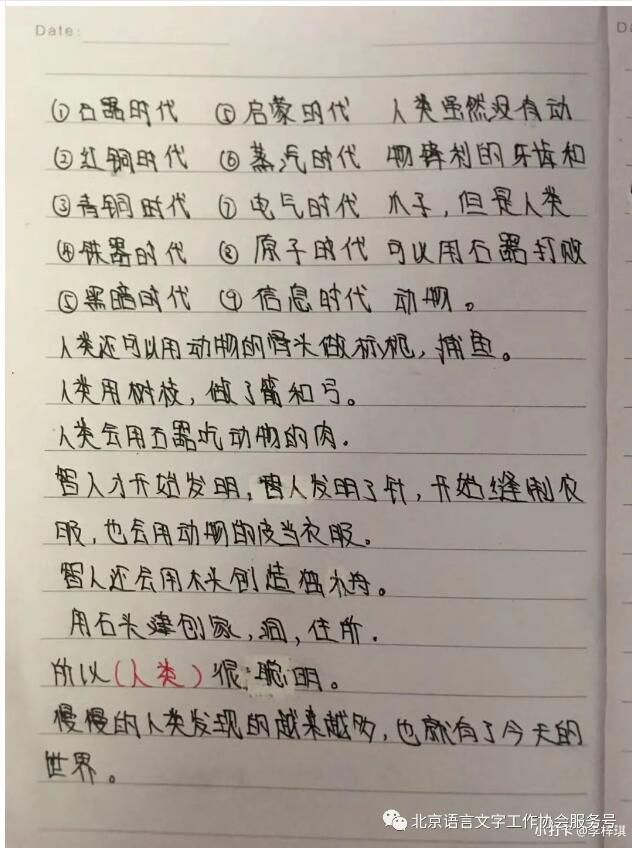 Date:
①石器时代 ⑤启蒙时代 人类虽然没有动
②红铜时代 ⑥蒸汽时代 物锋利的牙齿和
③青铜时代 ⑦电气时代 爪子，但是人类
④铁器时代 ⑧原子时代 可以用石器打败
⑤黑暗时代 ⑨信息时代 动物。
人类还可以用动物的骨头做标枪，捕鱼。
人类用树枝，做了箭和弓。
人类会用石器吃动物的肉.
智人才开始发明，智人发明了针，开始缝制衣
服，也会用动物的皮当衣服。
智人还会用木头创造独木舟。
用石头建创家，洞，住所.
所以(人类)很聪明。
慢慢的人类发现的越来越多，也就有了今天的
世界。
北京语言文字工作协会服务号
小打卡@李梓琪